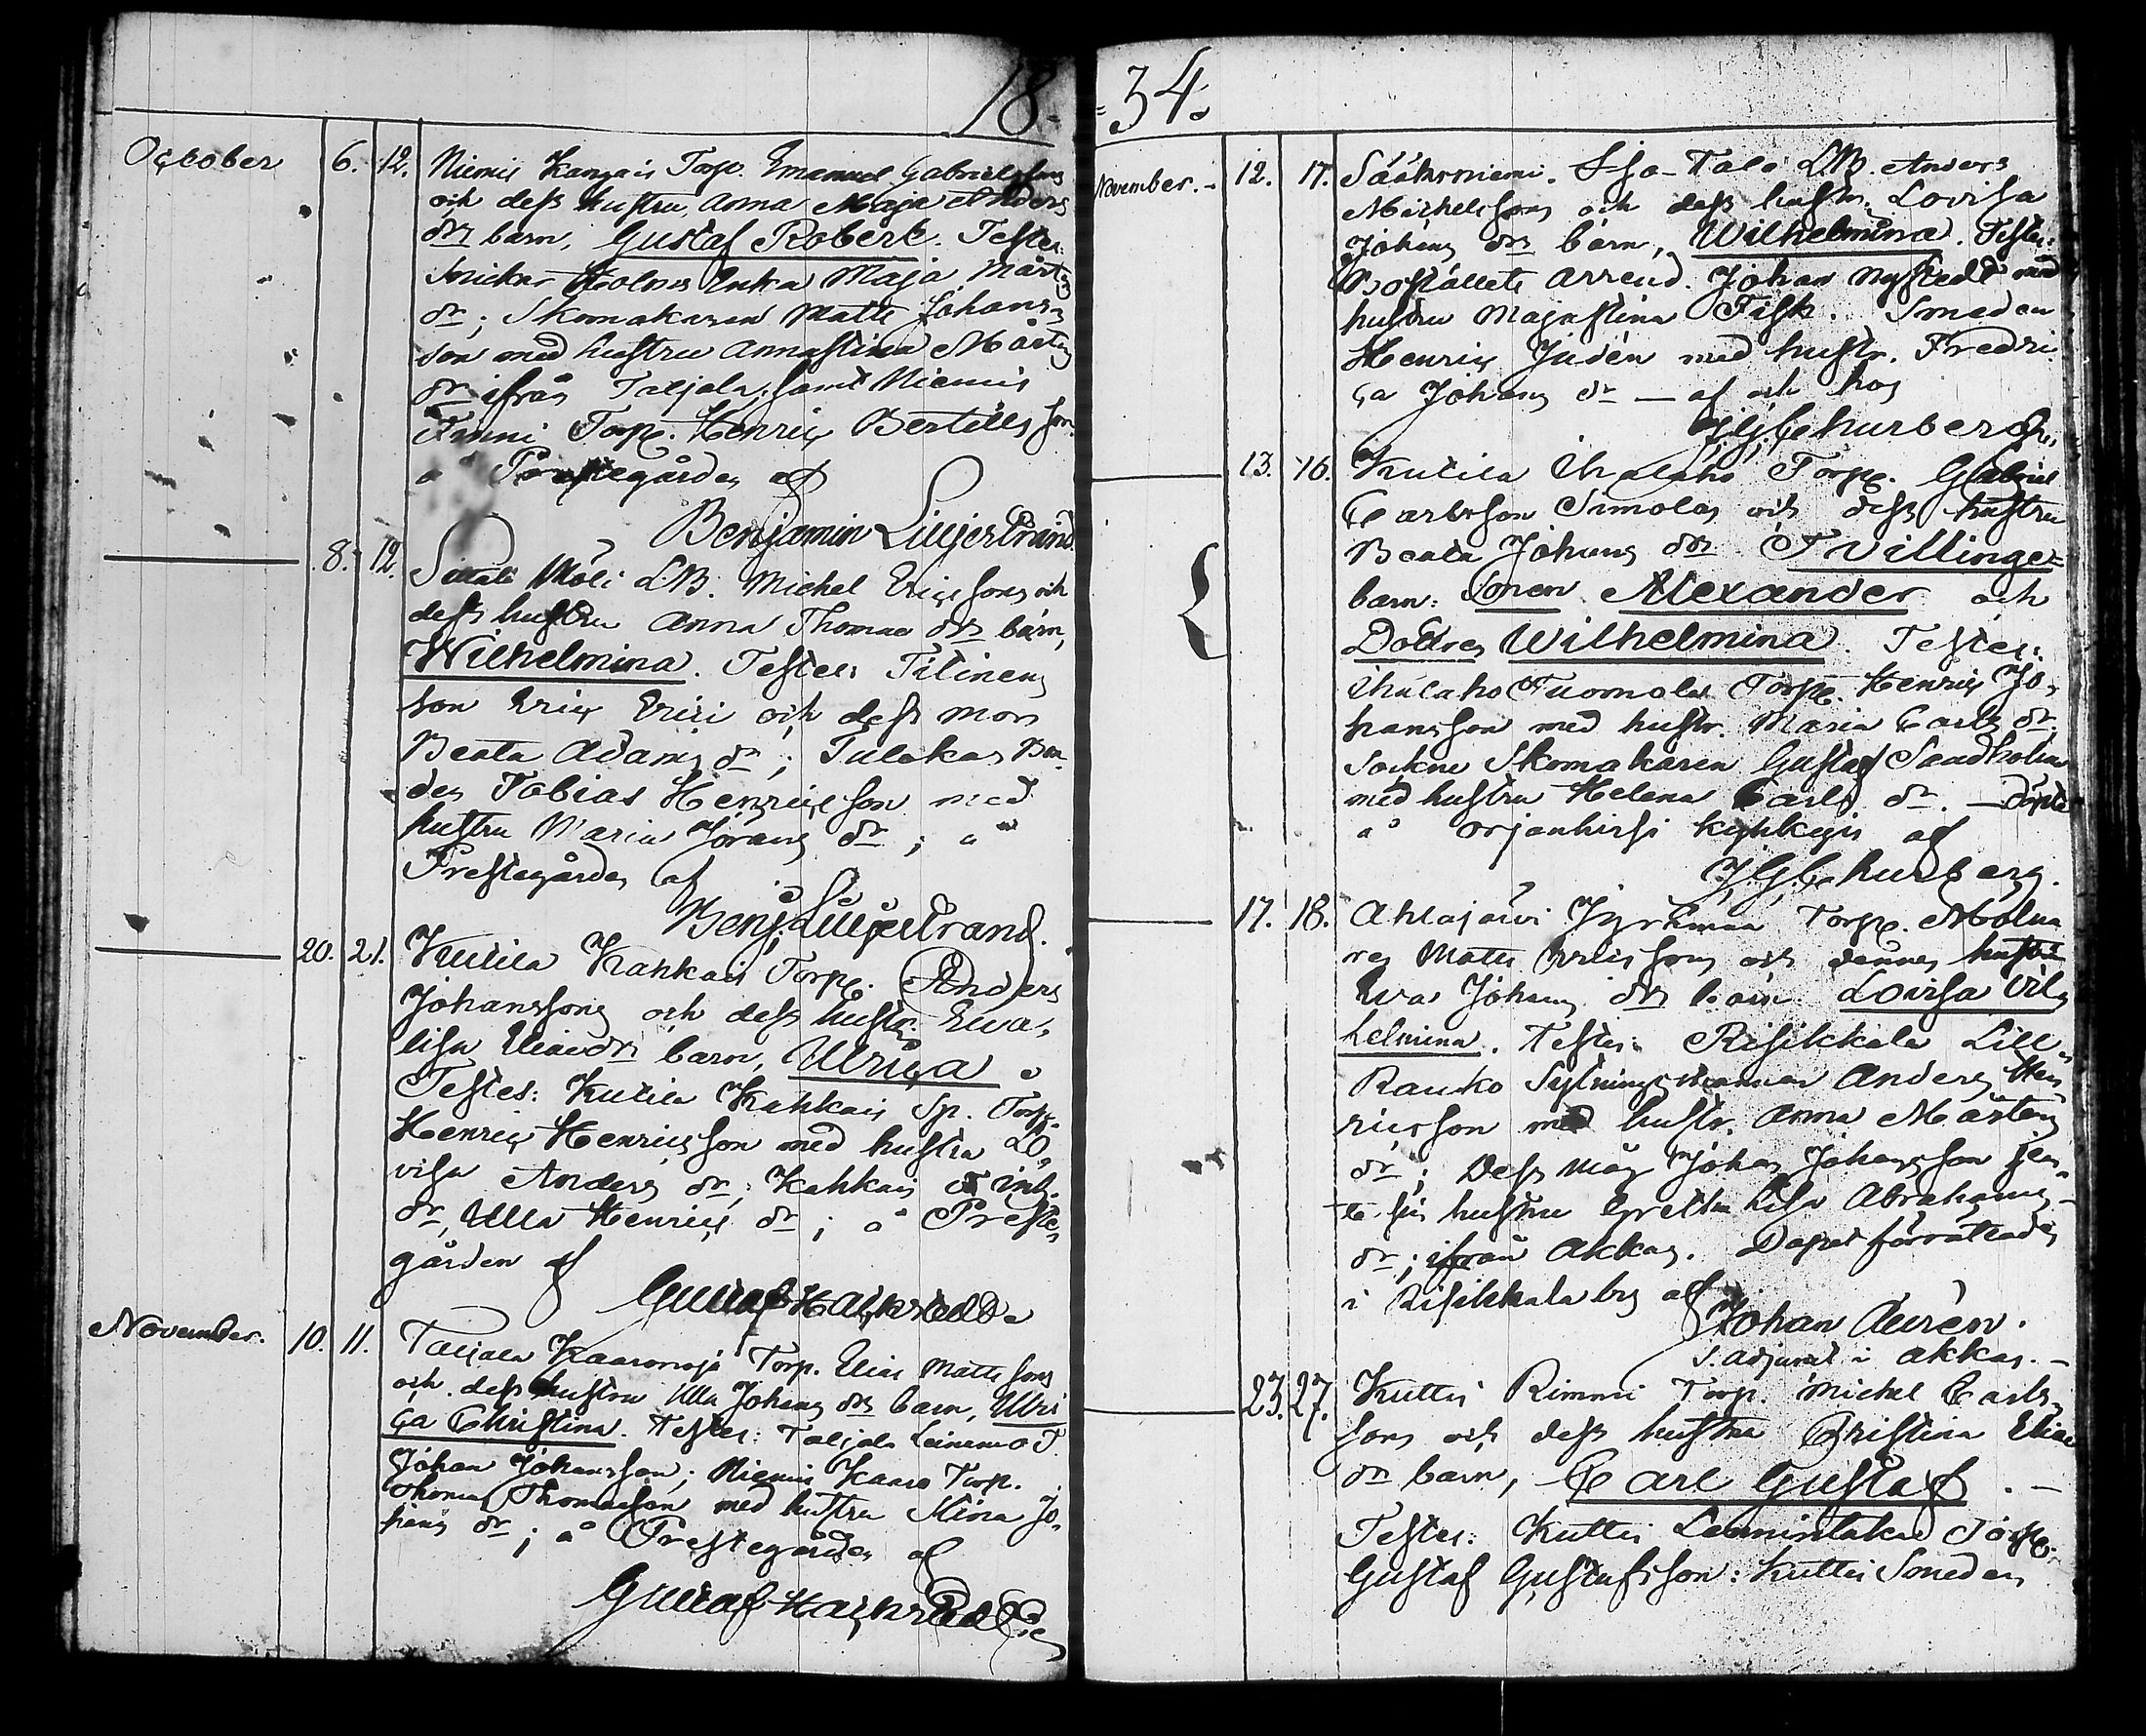 18=
October 6. 12. Niemis Kangais Torp. Emanuel Gabrielssons
och dess hustru, Anna Maja Anders
drs barn, Gustaf Robert. Testes:
Snickar Holms Enka Maja Mårt
dr; Skomakaren Matts Johans=
son med hustru Annastina Mårt
dr ifrån Taljala, samt Niemis
Torp. Henric Bertills son
å Prestegården af
Benjamin Liljestrand
8. 12. LB. Michel Ericssons och
dess hustru Anna Thomae drs barn,
Wilhelmina. Testes: Titinens
son Eric Erici och dess mor
Beata Adams dr; Tulokas Bon
den Tobias Henricsson med
hustru Maria Jörans dr; å
Prestegården af
Benj. Liljestrand.
20. 21. Kutila Kahkais Torp. Anders
Johanssons och dess hustr. Ewa
lisa Eliæ drs barn, Ulrica.
Testes: Kutila Kahkais Sp. Torp.
Henric Henricsson med hustru Lo
visa Anders dr; Kahkais inh.
dr, Ulla Henrics dr; å Preste
gården af
Gustaf
November. 10. 11. Taljala Torp. Elias Mattssons
och dess hustru Ulla Johans drs barn, Ulri
ca Christina. Testes: Taljala
Johan Johansson; Niemis Torp.
Thomas Thomasson med hustru Stina Jo
hans dr; å Prestegården af
Gustaf
=34.
November. 12. 17. Sääksniemi. LB. Anders
Michelssons och dess hustr. Lovisa
Johans drs barn, Wilhelmina. Testes:
Boställets Arrend. Johan Nystedt med
hustru Majastina Fisk. Smeden
Henric Judén med hustr. Fredri
ca Johans dr — af och hos
J. G. Churberg.
13. 16. Kutila Torp. Gabriel
Carlsson Simolas och dess hustru
Beata Johans drs Tvillinge=
barn: Sonen Alexander och
Dottren Wilhelmina. Testes:
Torp. Henric Jo
hansson med hustr. Maria Carls dr.
Sockne Skomakaren Gustaf Sandholm
med hustru Helena Carls dr. — döpte
å af
J. G. Churberg.
17. 18. Ahlajärvi Torp. Molna
res Matts Ericssons och dennes hustru
Evas Johans drs barn Lovisa Vil
helmina. Testes: Risikkala Lill
Rauko Sytningsmannen Anders Hen
ricsson med hustr. Anna Mårtens
dr; Dess Måg Johan Johansson jem
te sin hustru Greta Lisa Abrahams
dr; ifrån Akkas. Dopet förrättades
i Risikkala by af
Johan Aurén.
v. adjunct i Akkas. —
23. 27. Kuttis Rimmi Torp. Michel Carls
sons och dess hustru Christina Eliæ
drs barn, Carl Gustaf. —
Testes: Kuttis Torp.
Gustaf Gustafsson: Kuttis Smeden